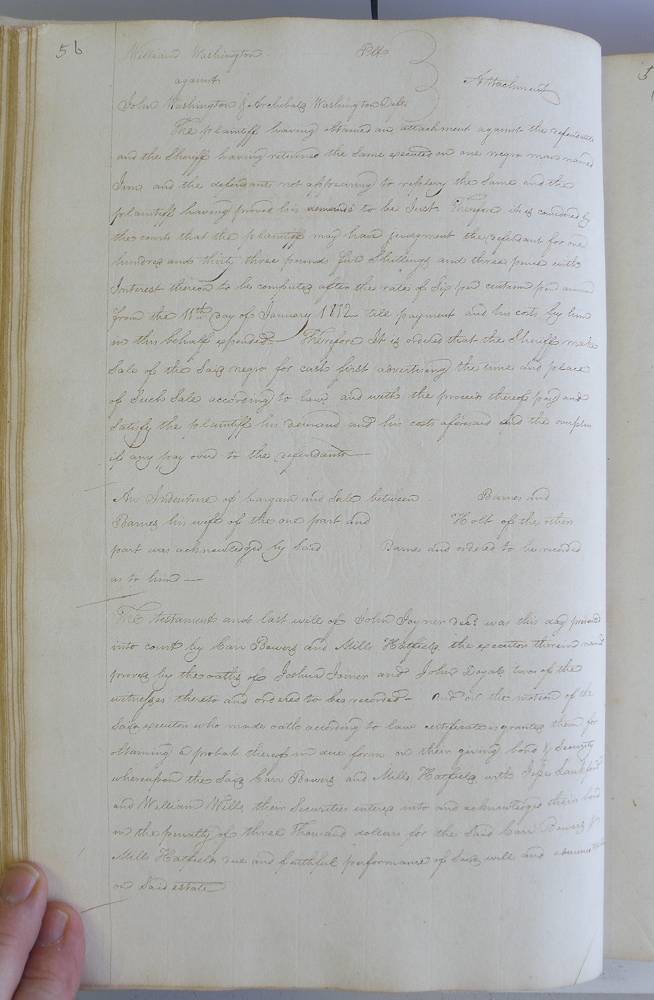 56
William Washington Plt
against
Attachment
John Washington & Archibald Washington Defts
The plaintiff having obtained an attachment against the defendants
and the Sheriff having returned the Same executed on one negro man named
Jim, and the defendants not appearing to replevy the Same and the
plaintiff having proved his demand to be Just Therefore it is considered by
the court that the plaintiff may have judgment the defendant for one
hundred and thirty three pound five Shillings and three pence with
Interest thereon to be computed after the rate of Six per centum per annum
from the 11th day of January 1772 till payment and his costs by him
in this behalf expended Therefore It is ordered that the Sheriff make
Sale of the Said negro for cash first advertising the time and place
of Such Sale according to law and with the proceeds thereof pay and
Satisfy the plaintiff his demand and his costs aforesaid and the overplus
if any pay over to the defendants
An Indenture of bargain and Sale between Barnes and
Barnes his wife of the one part and Holt of the other
part was acknowledged by Said Barnes and ordered to be recorded
as to him
The testament and last will of John Joyner decd was this day presented
into court by Carr Bowers and Mills Hatfield the executors therein named
proved by the oaths of Joshua Joiner and John Doyal two of the
witnesses thereto and ordered to be recorded - And on the motion of the
Said executors who made oath according to law certificate is granted them for
obtaining a probat thereof in due form on their giving bond & Security
whereupon the Said Carr Bowers and Mills Hatfield with
and William Wills their Securities entered into and acknowledged their bond
in the penalty of three Thousand dollars for the Said Carr Bowers &
Mills Hatfield due and faithful performance of Said will and
on Said estate